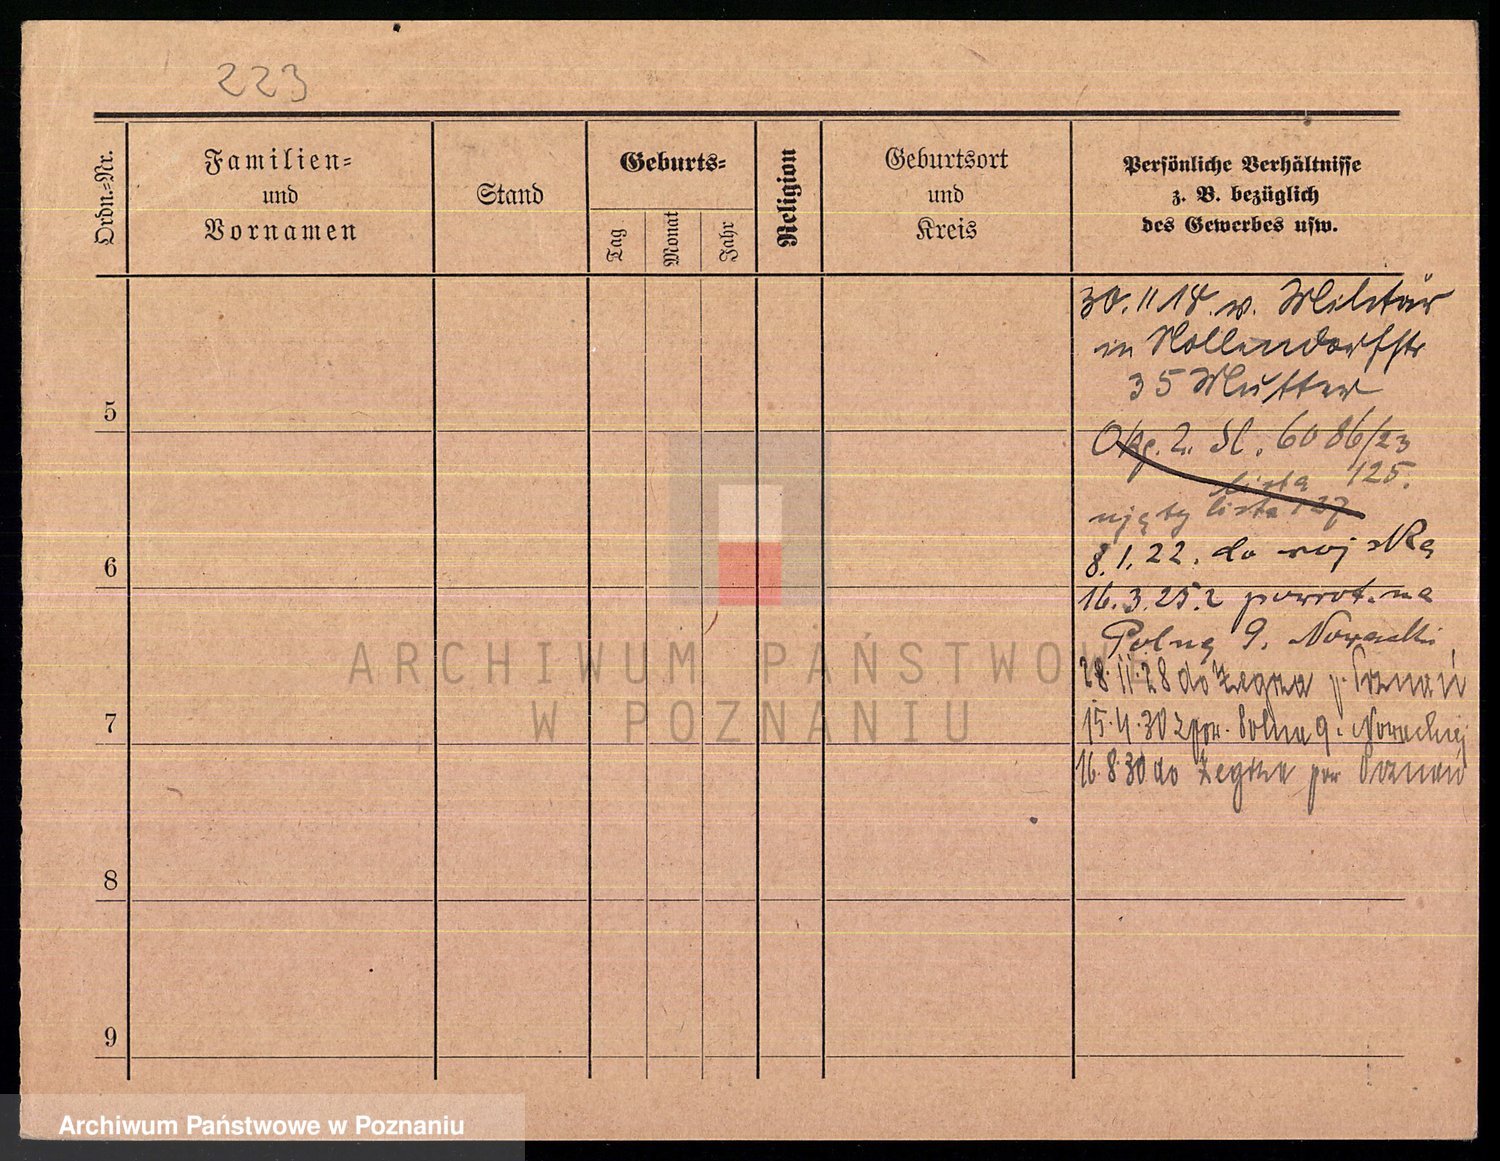 223
Ordn.=Nr.
Familien=
und
Vornamen
Stand
Geburts=
Tag
Monat
Jahr
Religion
Geburtsort
und
Kreis
Persönliche Verhältnisse
z. B. bezüglich
des Gewerbes usw.
30. 11 18. v. Militär
in Nollendorfstr
35 Mutter
5
2. Sl. 6086/23
lista 125.
ujęty lista 127
8. 1. 22. do wojska
6
16. 3. 25. z powrot. na
Polną 9.
28. 11. 28 do Żegrza p. Poznań
7
15. 4. 30 z por. Polna 9.
16. 8. 30 do Żegrza por Poznań
8
9
ARCHIWUM PAŃSTWOWE
W POZNANIU
Archiwum Państwowe w Poznaniu